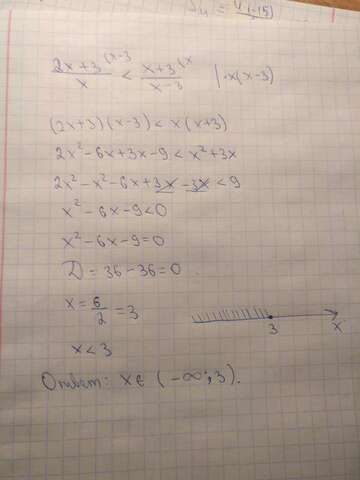 (2x+3)/x ^(x-3) < (x+3)/(x-3) ^(x | ·x(x-3)
(2x+3)(x-3) < x(x+3)
2x²-6x+3x-9 < x²+3x
2x²-x²-6x+3x-3x < 9
x²-6x-9<0
x²-6x-9=0
D = 36-36=0.
x = 6/2 = 3
3 x
x < 3
Ответ: x∈ (-∞;3).